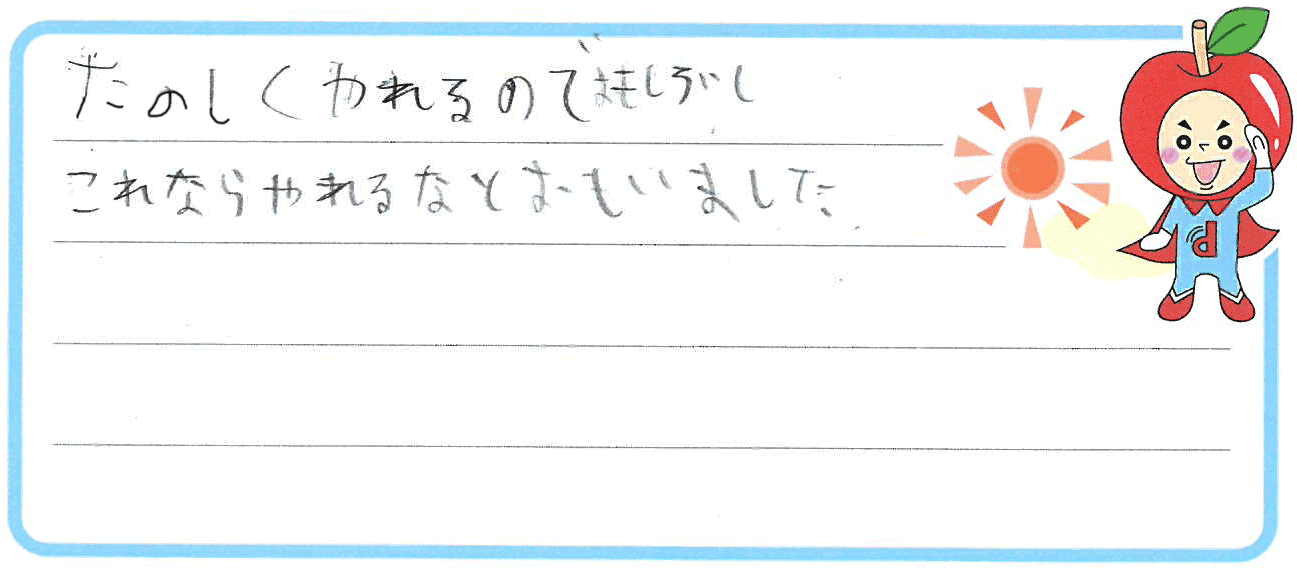 たのしくやれるのでおもしろいし
これならやれるなとおもいました